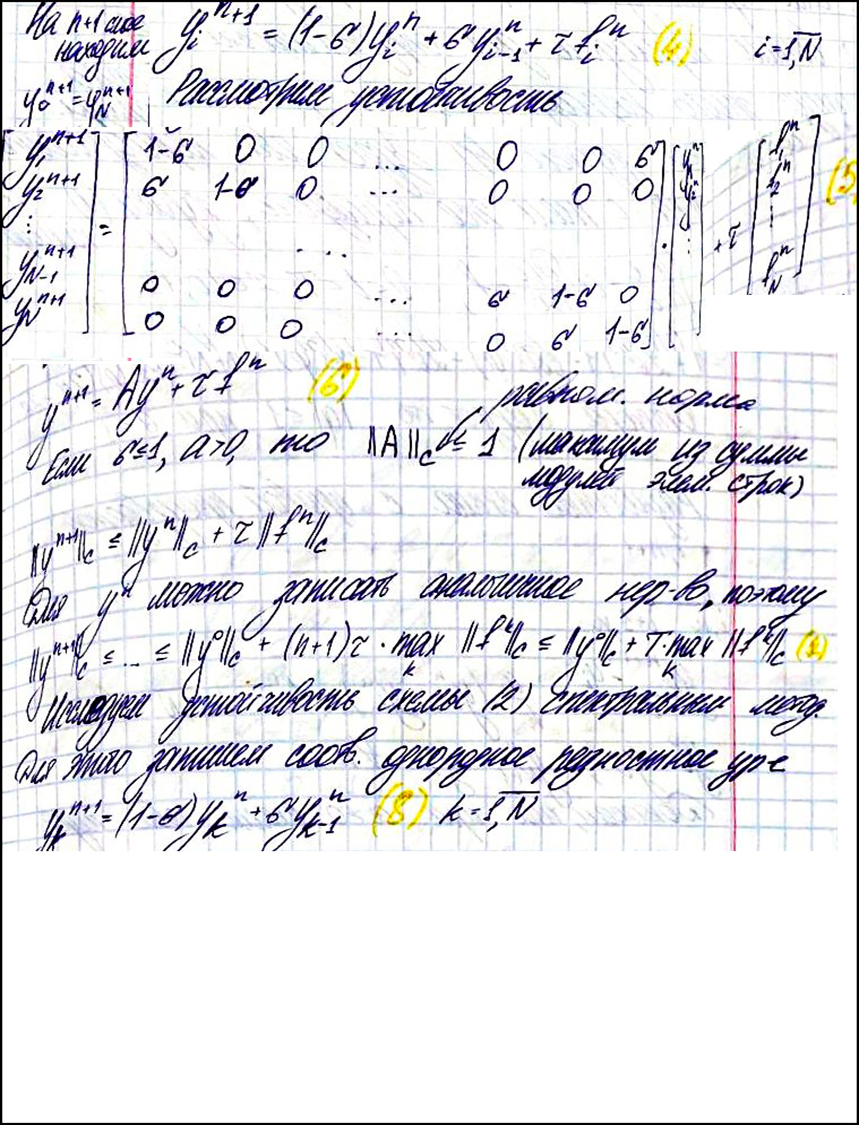 На n+1 слое находим y_i^{n+1} = (1-б)y_i^n + б y_{i-1}^n + τ f_i^n (4) i=1,N̅
y_0^{n+1} = y_N^{n+1} Рассмотрим устойчивость
[y_1^{n+1}] = [1-б 0 0 ... 0 0 б] · [y_1^n] + τ [f_1^n] (5)
[y_2^{n+1}] [б 1-б 0 ... 0 0 0] [y_2^n] [f_2^n]
⋮ ... ⋮ ⋮
[y_{N-1}^{n+1}] [0 0 0 ... б 1-б 0]
[y_N^{n+1}] [0 0 0 ... 0 б 1-б] [f_N^n]
y^{n+1} = Ay^n + τ f^n (6) равном. норма
Если б≤1, a>0, то ||A||_C ≤ 1 (максимум из суммы
модулей элем. строк)
||y^{n+1}||_C ≤ ||y^n||_C + τ ||f^n||_C
Для y^n можно записать аналогичное нер-во, поэтому
||y^{n+1}||_C ≤ ... ≤ ||y^0||_C + (n+1)τ · max_k ||f^k||_C ≤ ||y^0||_C + T · max_k ||f^k||_C
Исследуем устойчивость схемы (2) спектральным метод.
Для этого запишем соотв. однородное разностное ур-е
y_k^{n+1} = (1-б)y_k^n + б y_{k-1}^n (8) k=1,N̅